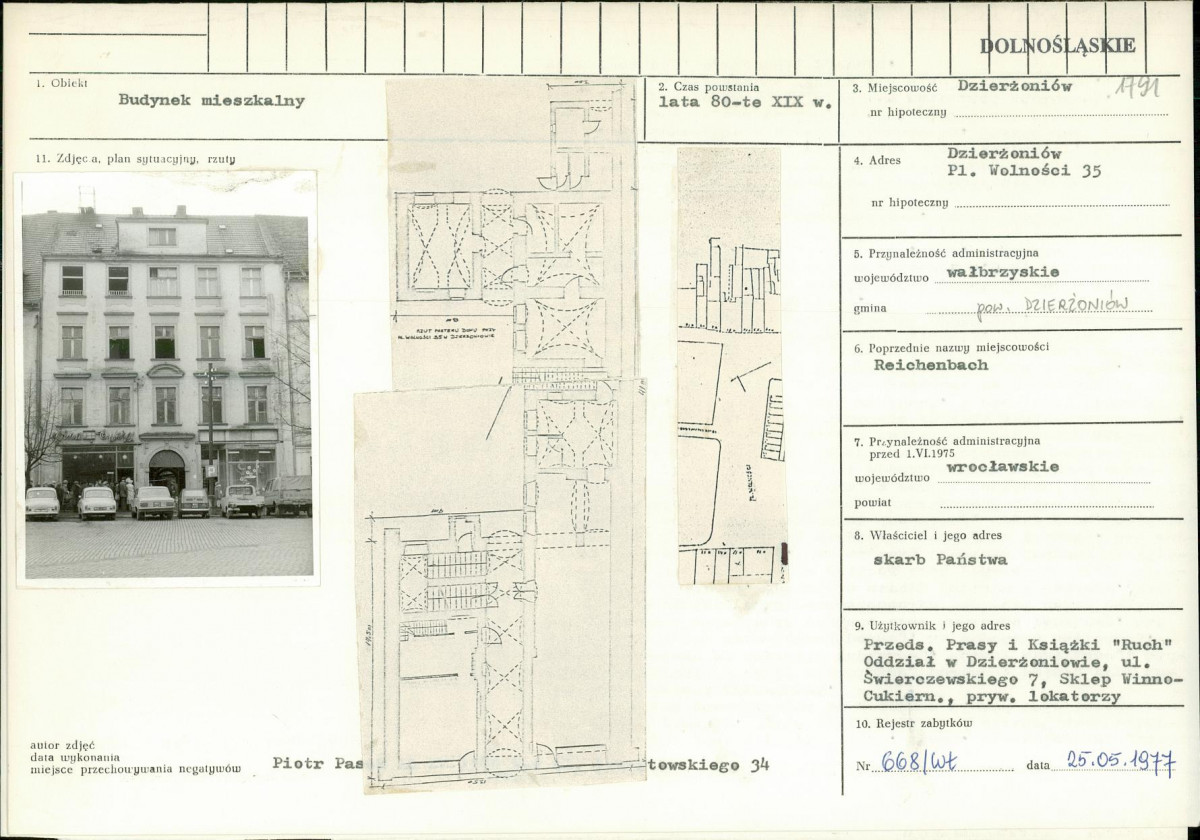 DOLNOŚLĄSKIE
1. Obiekt
Budynek mieszkalny
2. Czas powstania
lata 80-te XIX w.
3. Miejscowość Dzierżoniów
1791
nr hipoteczny
11. Zdjęcia, plan sytuacyjny, rzuty
4. Adres Dzierżoniów
Pl. Wolności 35
nr hipoteczny
5. Przynależność administracyjna
województwo wałbrzyskie
gmina pow. DZIERŻONIÓW
6. Poprzednie nazwy miejscowości
Reichenbach
7. Przynależność administracyjna
przed 1.VI.1975
województwo wrocławskie
powiat
8. Właściciel i jego adres
skarb Państwa
9. Użytkownik i jego adres
Przeds. Prasy i Książki "Ruch"
Oddział w Dzierżoniowie, ul.
Świerczewskiego 7, Sklep Winno-
Cukiern., pryw. lokatorzy
10. Rejestr zabytków
Nr 668/Wł data 25.05.1977
RZUT PARTERU DOMU PRZY
PL. WOLNOŚCI 35 W DZIERŻONIOWIE
PL. WOLNOŚCI
autor zdjęć
data wykonania
miejsce przechowywania negatywów
Piotr Pas towskiego 34